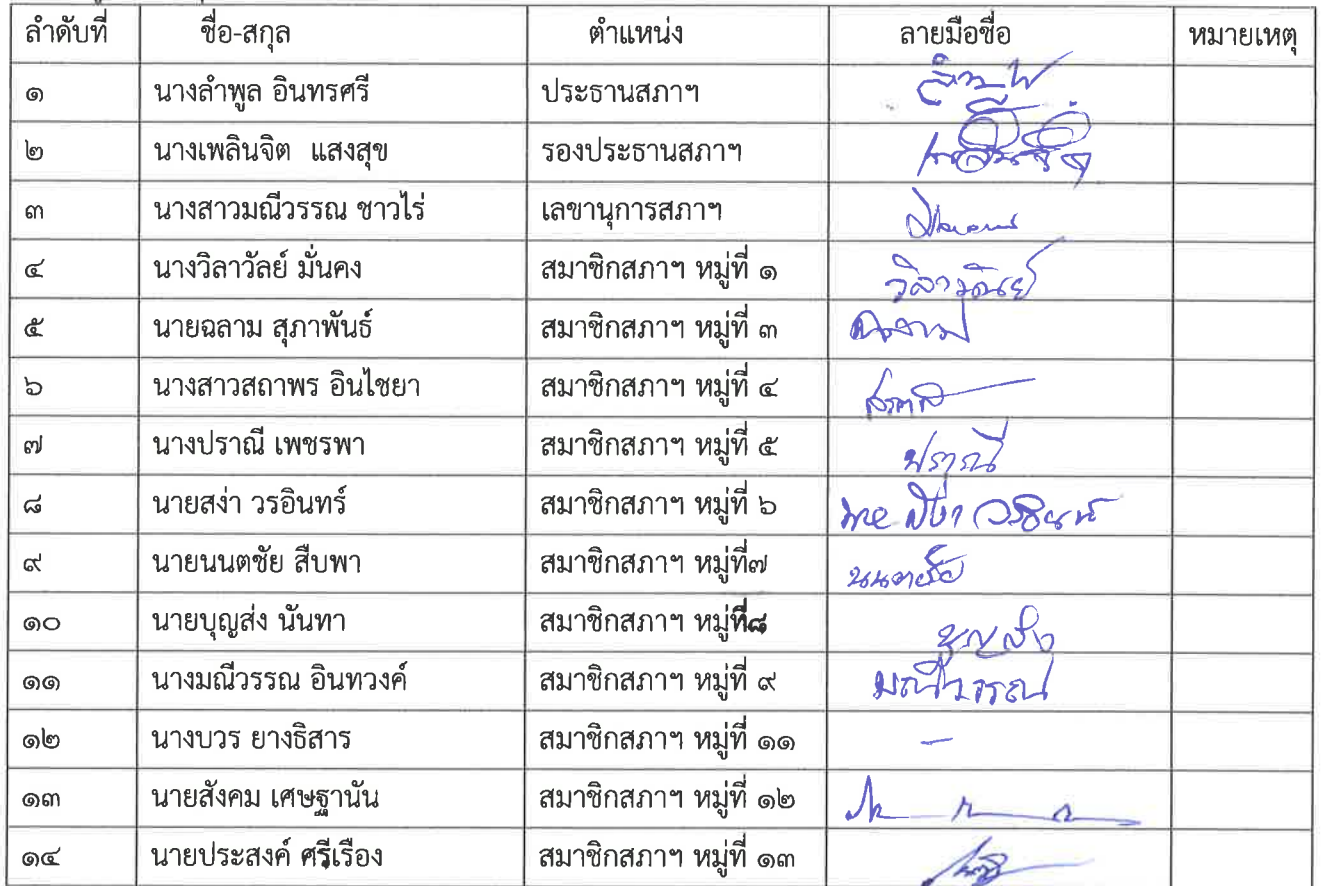 ลำดับที่ ชื่อ-สกุล ตำแหน่ง ลายมือชื่อ หมายเหตุ
๑ นางลำพูล อินทรศรี ประธานสภาฯ
๒ นางเพลินจิต แสงสุข รองประธานสภาฯ เพลินจิต
๓ นางสาวมณีวรรณ ชาวไร่ เลขานุการสภาฯ
๔ นางวิลาวัลย์ มั่นคง สมาชิกสภาฯ หมู่ที่ ๑ วิลาวัลย์
๕ นายฉลาม สุภาพันธ์ สมาชิกสภาฯ หมู่ที่ ๓ ฉลาม
๖ นางสาวสถาพร อินไชยา สมาชิกสภาฯ หมู่ที่ ๔
๗ นางปราณี เพชรพา สมาชิกสภาฯ หมู่ที่ ๕ ปราณี
๘ นายสง่า วรอินทร์ สมาชิกสภาฯ หมู่ที่ ๖ นาย สง่า วรอินทร์
๙ นายนนตชัย สืบพา สมาชิกสภาฯ หมู่ที่๗ นนตชัย
๑๐ นายบุญส่ง นันทา สมาชิกสภาฯ หมู่ที่๘ บุญส่ง
๑๑ นางมณีวรรณ อินทวงค์ สมาชิกสภาฯ หมู่ที่ ๙ มณีวรรณ
๑๒ นางบวร ยางธิสาร สมาชิกสภาฯ หมู่ที่ ๑๑ -
๑๓ นายสังคม เศษฐานัน สมาชิกสภาฯ หมู่ที่ ๑๒
๑๔ นายประสงค์ ศรีเรือง สมาชิกสภาฯ หมู่ที่ ๑๓